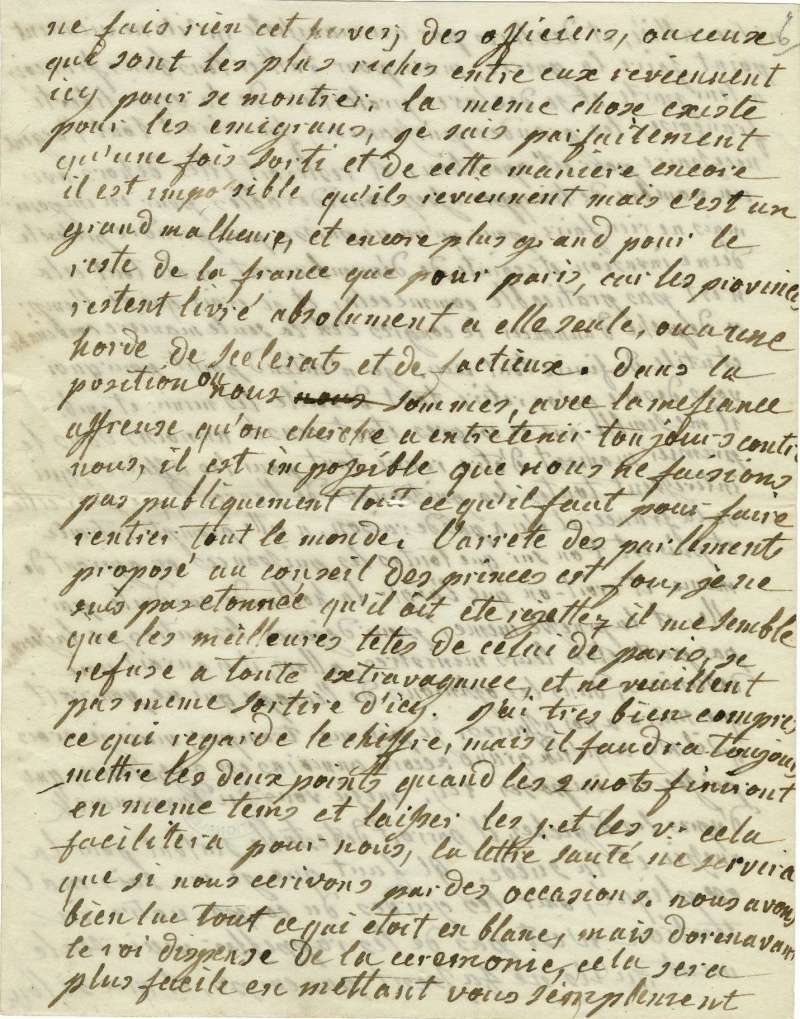 ne fais rien cet hiver, des officiers, ou ceux
qui sont les plus riches entre eux reviennent
icy pour se montrer, la meme chose existe
pour les emigrans, je sais parfaitement
qu'une fois sorti et de cette maniere encore
il est impossible qu'ils reviennent mais c'est un
grand malheur, et encore plus grand pour le
reste de la france que pour paris, car les provinces
restent livré absolument a elle seule, ou a une
horde de scelerats et de factieux. dans la
position ou nous nous sommes, avec la mefiance
affreuse qu'on cherche a entretenir toujours contre
nous, il est impossible que nous ne faisions
pas publiquement tout ce qu'il faut pour faire
rentrer tout le monde. l'arrete des parlements
proposé au conseil des princes est fou, je ne
suis pas etonnée qu'il ait ete rejettez il me semble
que les meilleures tetes de celui de paris, se
refuse a toute extravagance, et ne veuillent
pas meme sortire d'icy. j'ai tres bien compris
ce qui regarde le chiffre, mais il faudra toujours
mettre les deux points quand les 2 mots finiront
en meme tems et laisser les j. et les v. cela
facilitera pour nous, la lettre santé ne servira
que si nous ecrivons par des occasions. nous avons
bien lue tout ce qui etoit en blanc, mais dorenavant
le roi dispense de la ceremonie, cela sera
plus facile en mettant vous simplement